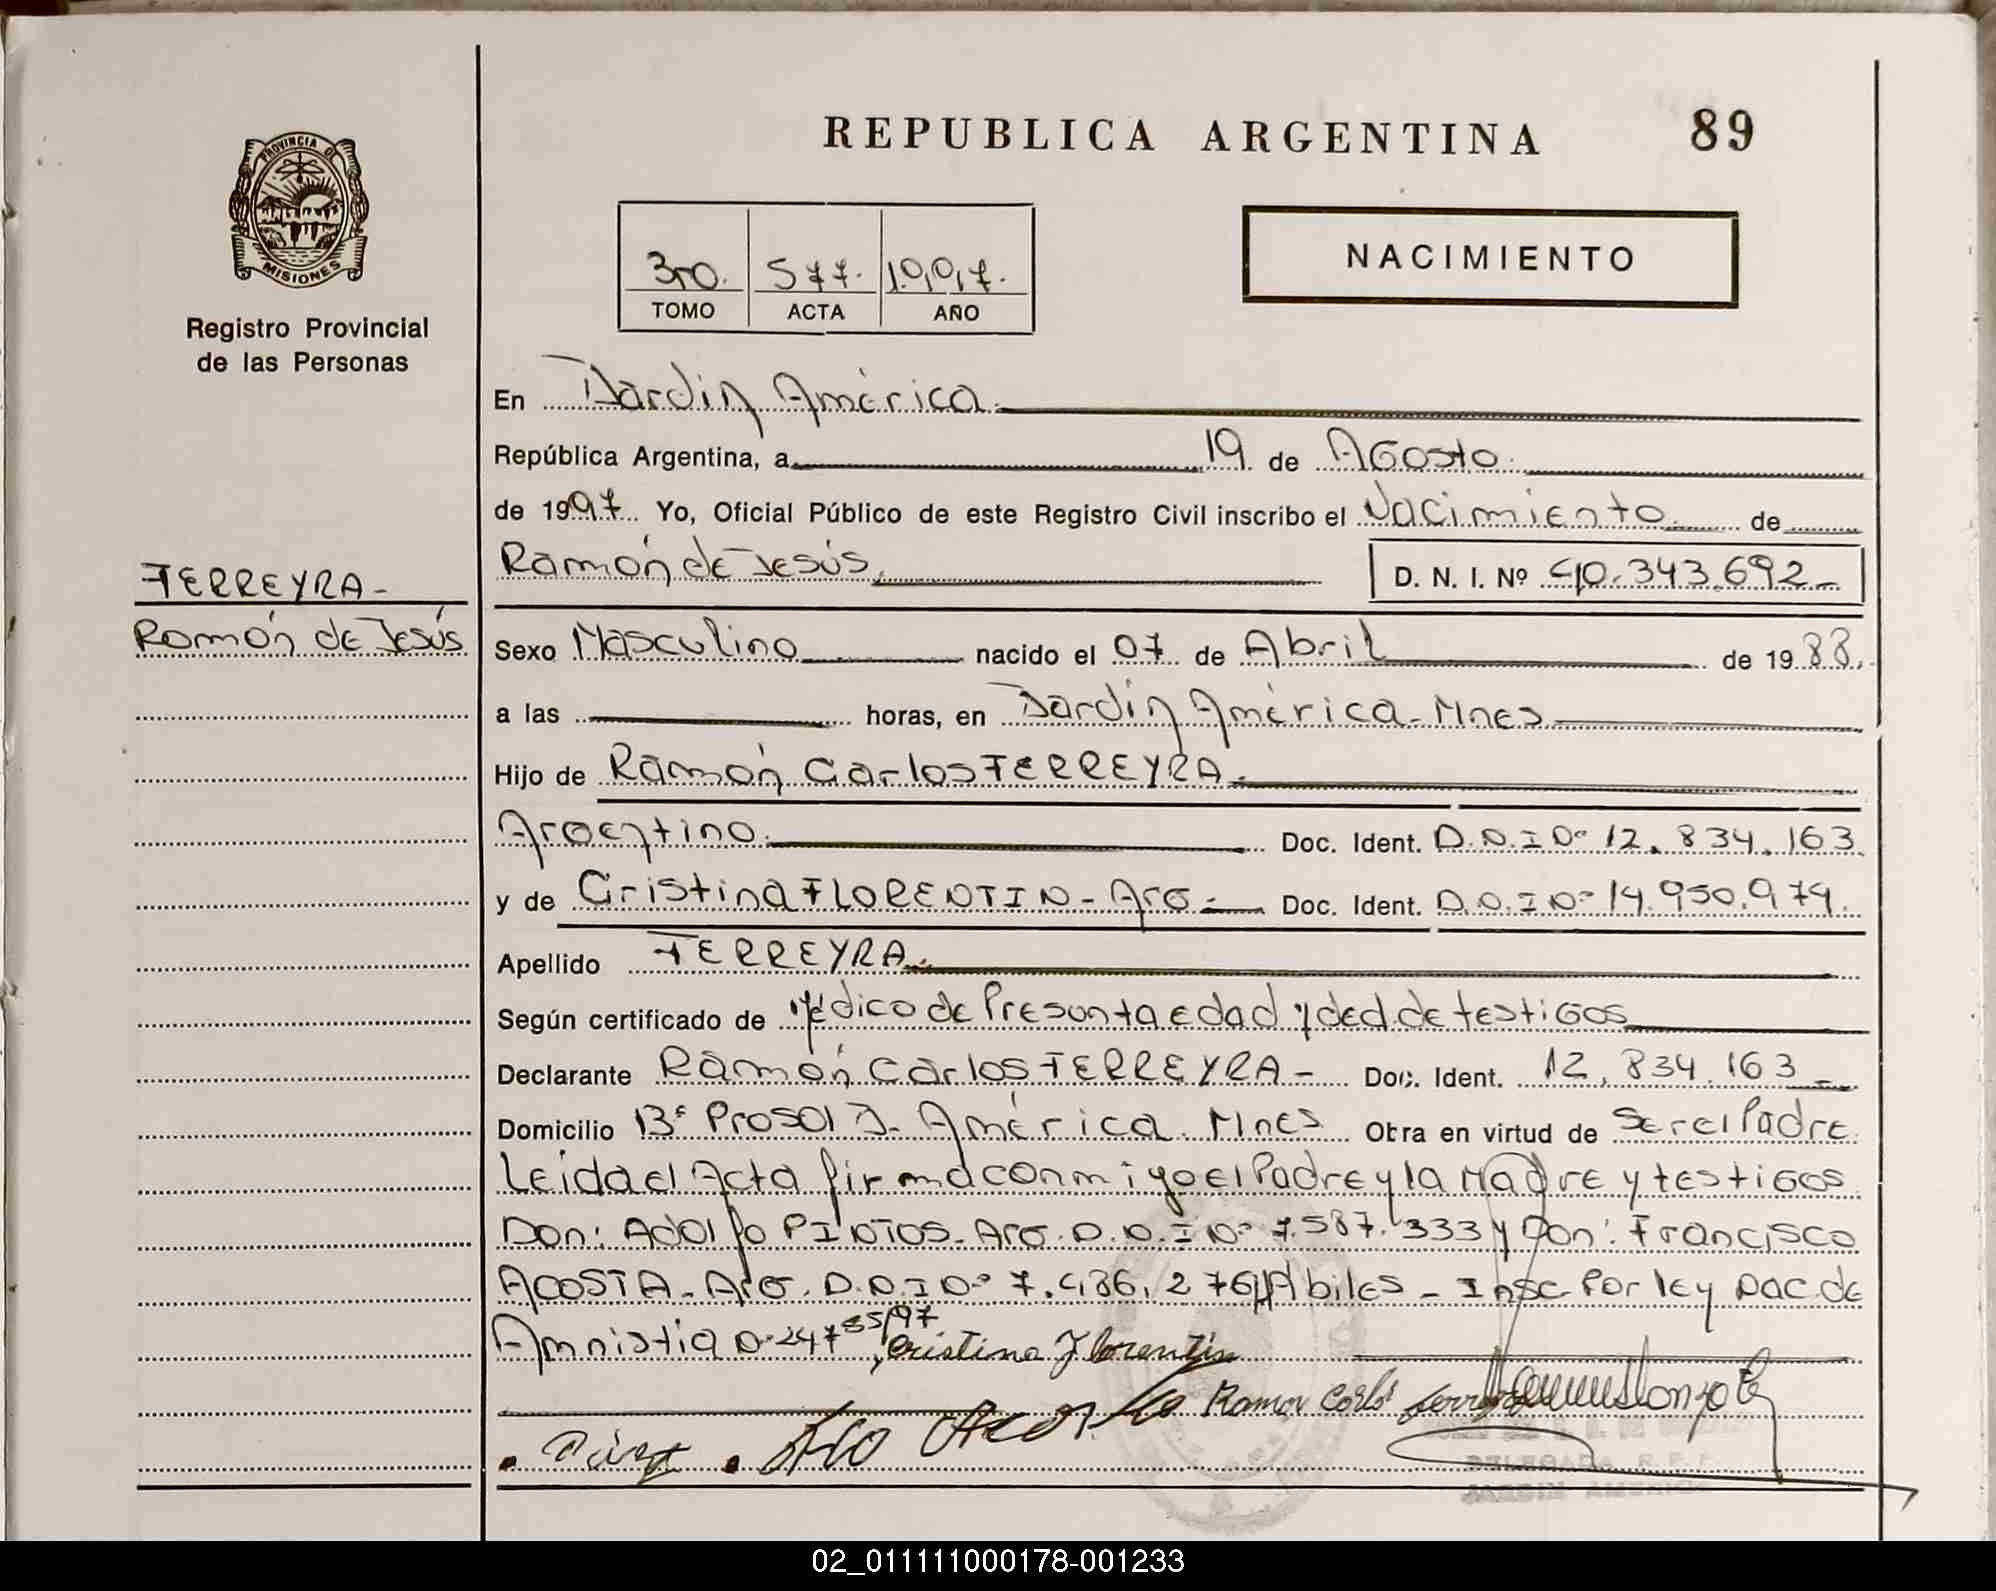 REPUBLICA ARGENTINA 89
PROVINCIA DE
MISIONES
Registro Provincial
de las Personas
3ro. 577. 1.997.
TOMO ACTA AÑO
NACIMIENTO
En Jardín América.
República Argentina, a 19 de Agosto
de 1997. Yo, Oficial Público de este Registro Civil inscribo el Nacimiento de
Ramón de Jesús. D. N. I. Nº 40.343.692-
TERREYRA-
Ramón de Jesús
Sexo Masculino nacido el 07 de Abril de 1988.
a las horas, en Jardín América-Mnes
Hijo de Ramón Carlos TERREYRA.
Argentino. Doc. Ident. D.N.I Nº 12.834.163
y de Cristina FLORENTIN-Arg.- Doc. Ident. D.N.I Nº 14.950.974.
Apellido TERREYRA.
Según certificado de Médico de Presunta edad y ded. de testigos
Declarante Ramón Carlos TERREYRA- Doc. Ident. 12.834.163-
Domicilio 13º Prosol J. América. Mnes Obra en virtud de Ser el Padre.
Leida el Acta firma conmigo el Padre y la Madre y testigos
Don: Adolfo PINTOS-Arg. D.N.I Nº 7.587.333 y Don: Francisco
ACOSTA-Arg. D.N.I Nº 7.486.276 Hábiles-Insc. Por ley Nac. de
Amnistia Nº 24755/97
Cristina Florentin
Ramon Carlos
02_011111000178-001233